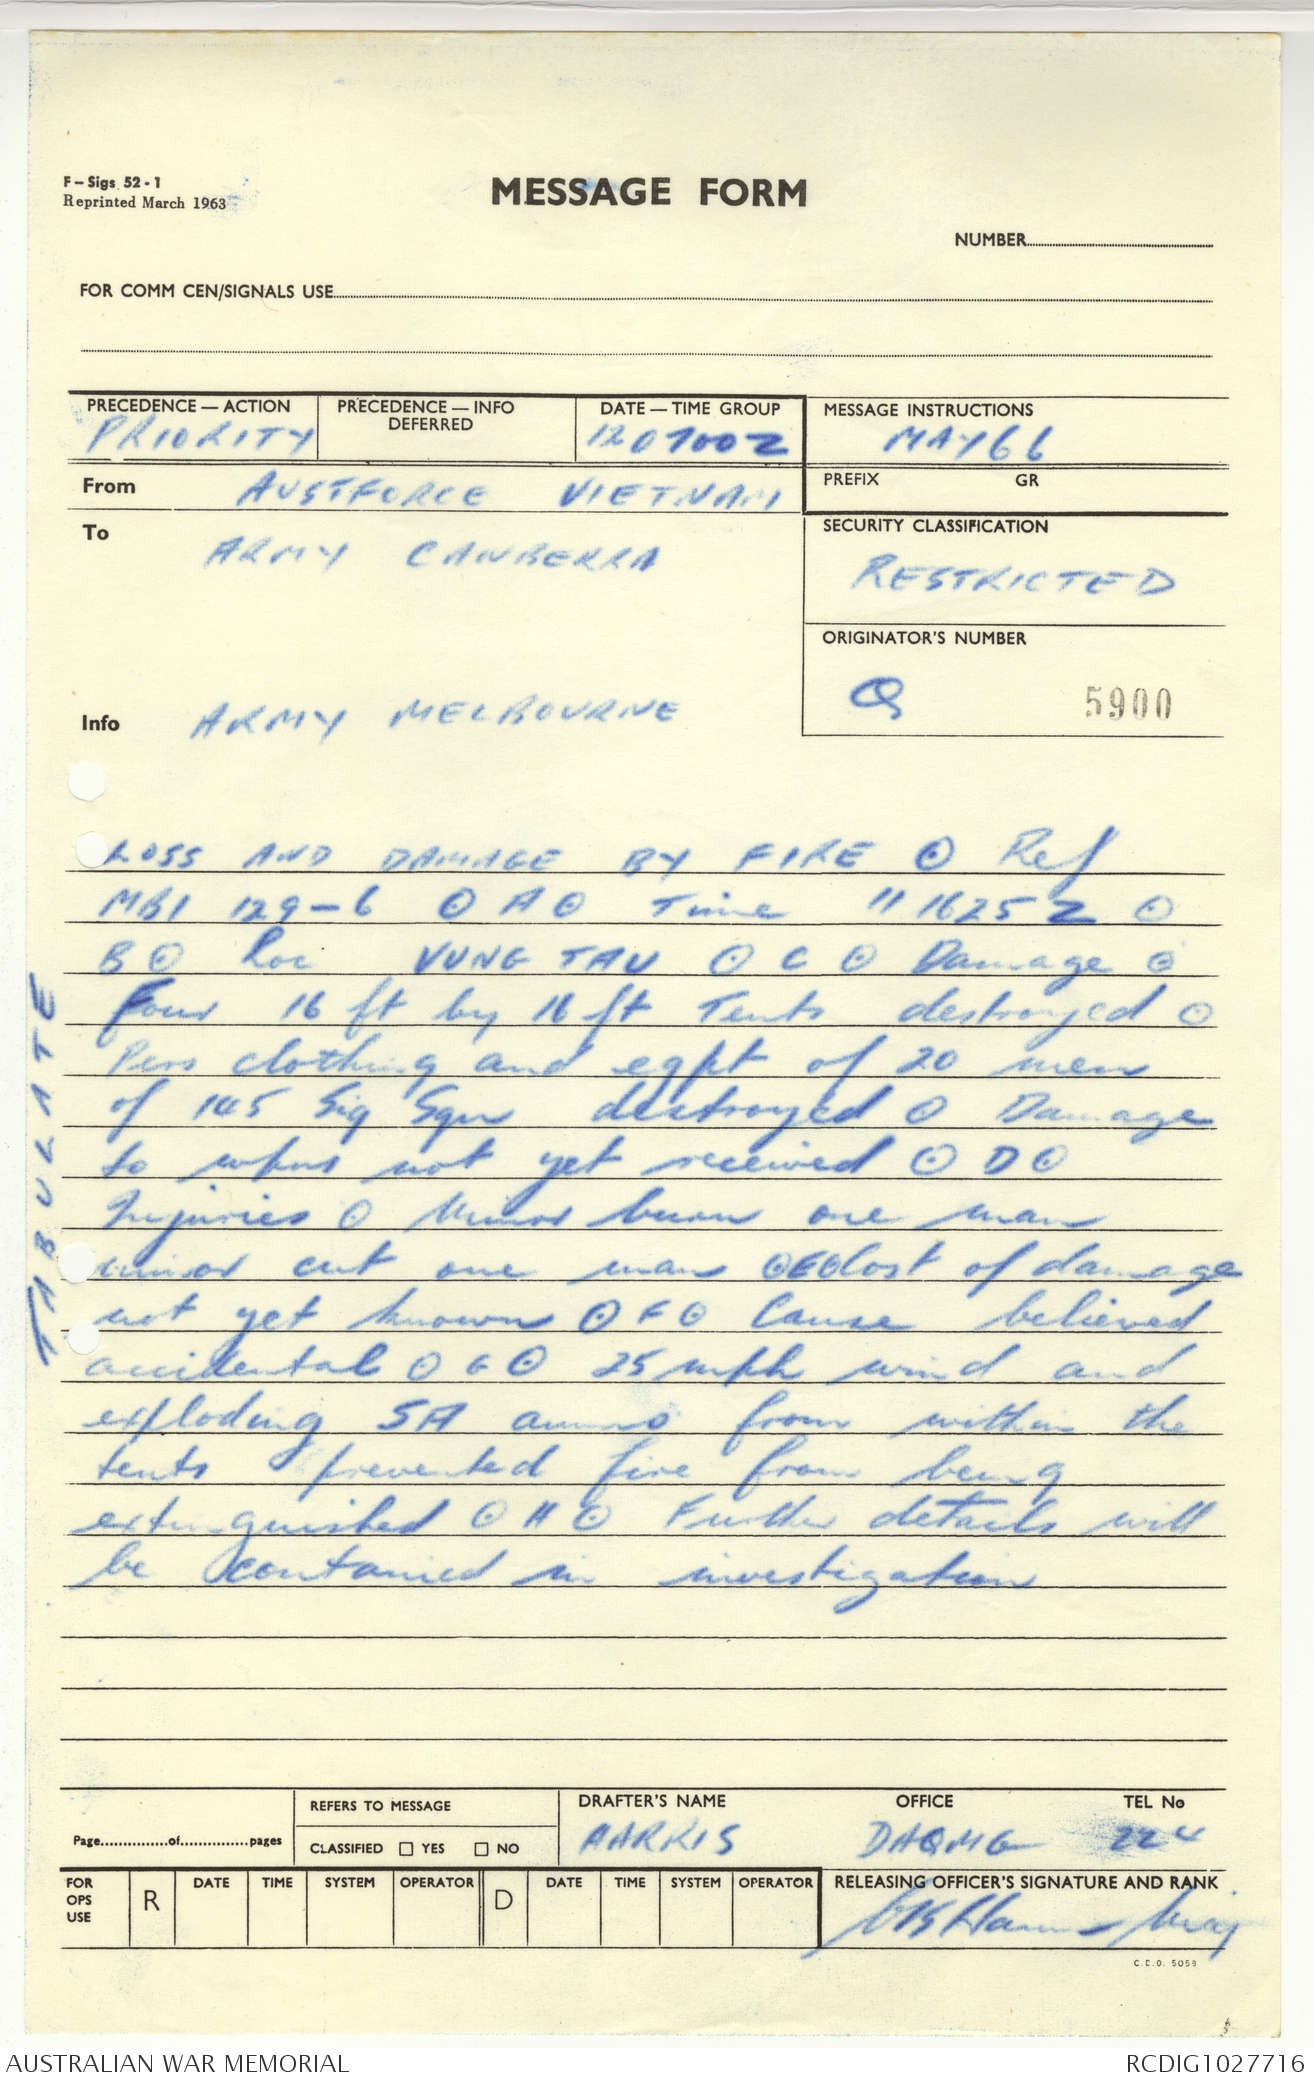 F-Sigs 52-1
Reprinted March 1963
MESSAGE FORM
NUMBER
FOR COMM CEN/SIGNALS USE
PRECEDENCE — ACTION
PRIORITY
PRECEDENCE — INFO
DEFERRED
DATE — TIME GROUP
120700Z
MESSAGE INSTRUCTIONS
MAY 66
From AUSTFORCE VIETNAM
PREFIX GR
To ARMY CANBERRA
SECURITY CLASSIFICATION
RESTRICTED
ORIGINATOR'S NUMBER
Q 5900
Info ARMY MELBOURNE
TABULATE
LOSS AND DAMAGE BY FIRE ⊙ Ref
MBI 129-6 ⊙ A ⊙ Time 111625Z ⊙
B ⊙ Loc VUNG TAU ⊙ C ⊙ Damage ⊙
Four 16 ft by 16 ft Tents destroyed ⊙
Pers clothing and eqpt of 20 men
of 145 Sig Sqn destroyed ⊙ Damage
to wpns not yet received ⊙ D ⊙
Injuries ⊙ Minor burn one man
minor cut one man ⊙ E ⊙ Cost of damage
not yet known ⊙ F ⊙ Cause believed
accidental ⊙ G ⊙ 25 mph wind and
exploding SA ammo from within the
tents prevented fire from being
extinguished ⊙ H ⊙ Further details will
be contained in investigation
Page of pages
REFERS TO MESSAGE
CLASSIFIED YES NO
DRAFTER'S NAME
HARRIS
OFFICE
DAQMG
TEL No
224
FOR OPS USE
R DATE TIME SYSTEM OPERATOR D DATE TIME SYSTEM OPERATOR
RELEASING OFFICER'S SIGNATURE AND RANK
Maj
C.D.O. 5059
AUSTRALIAN WAR MEMORIAL RCDIG1027716